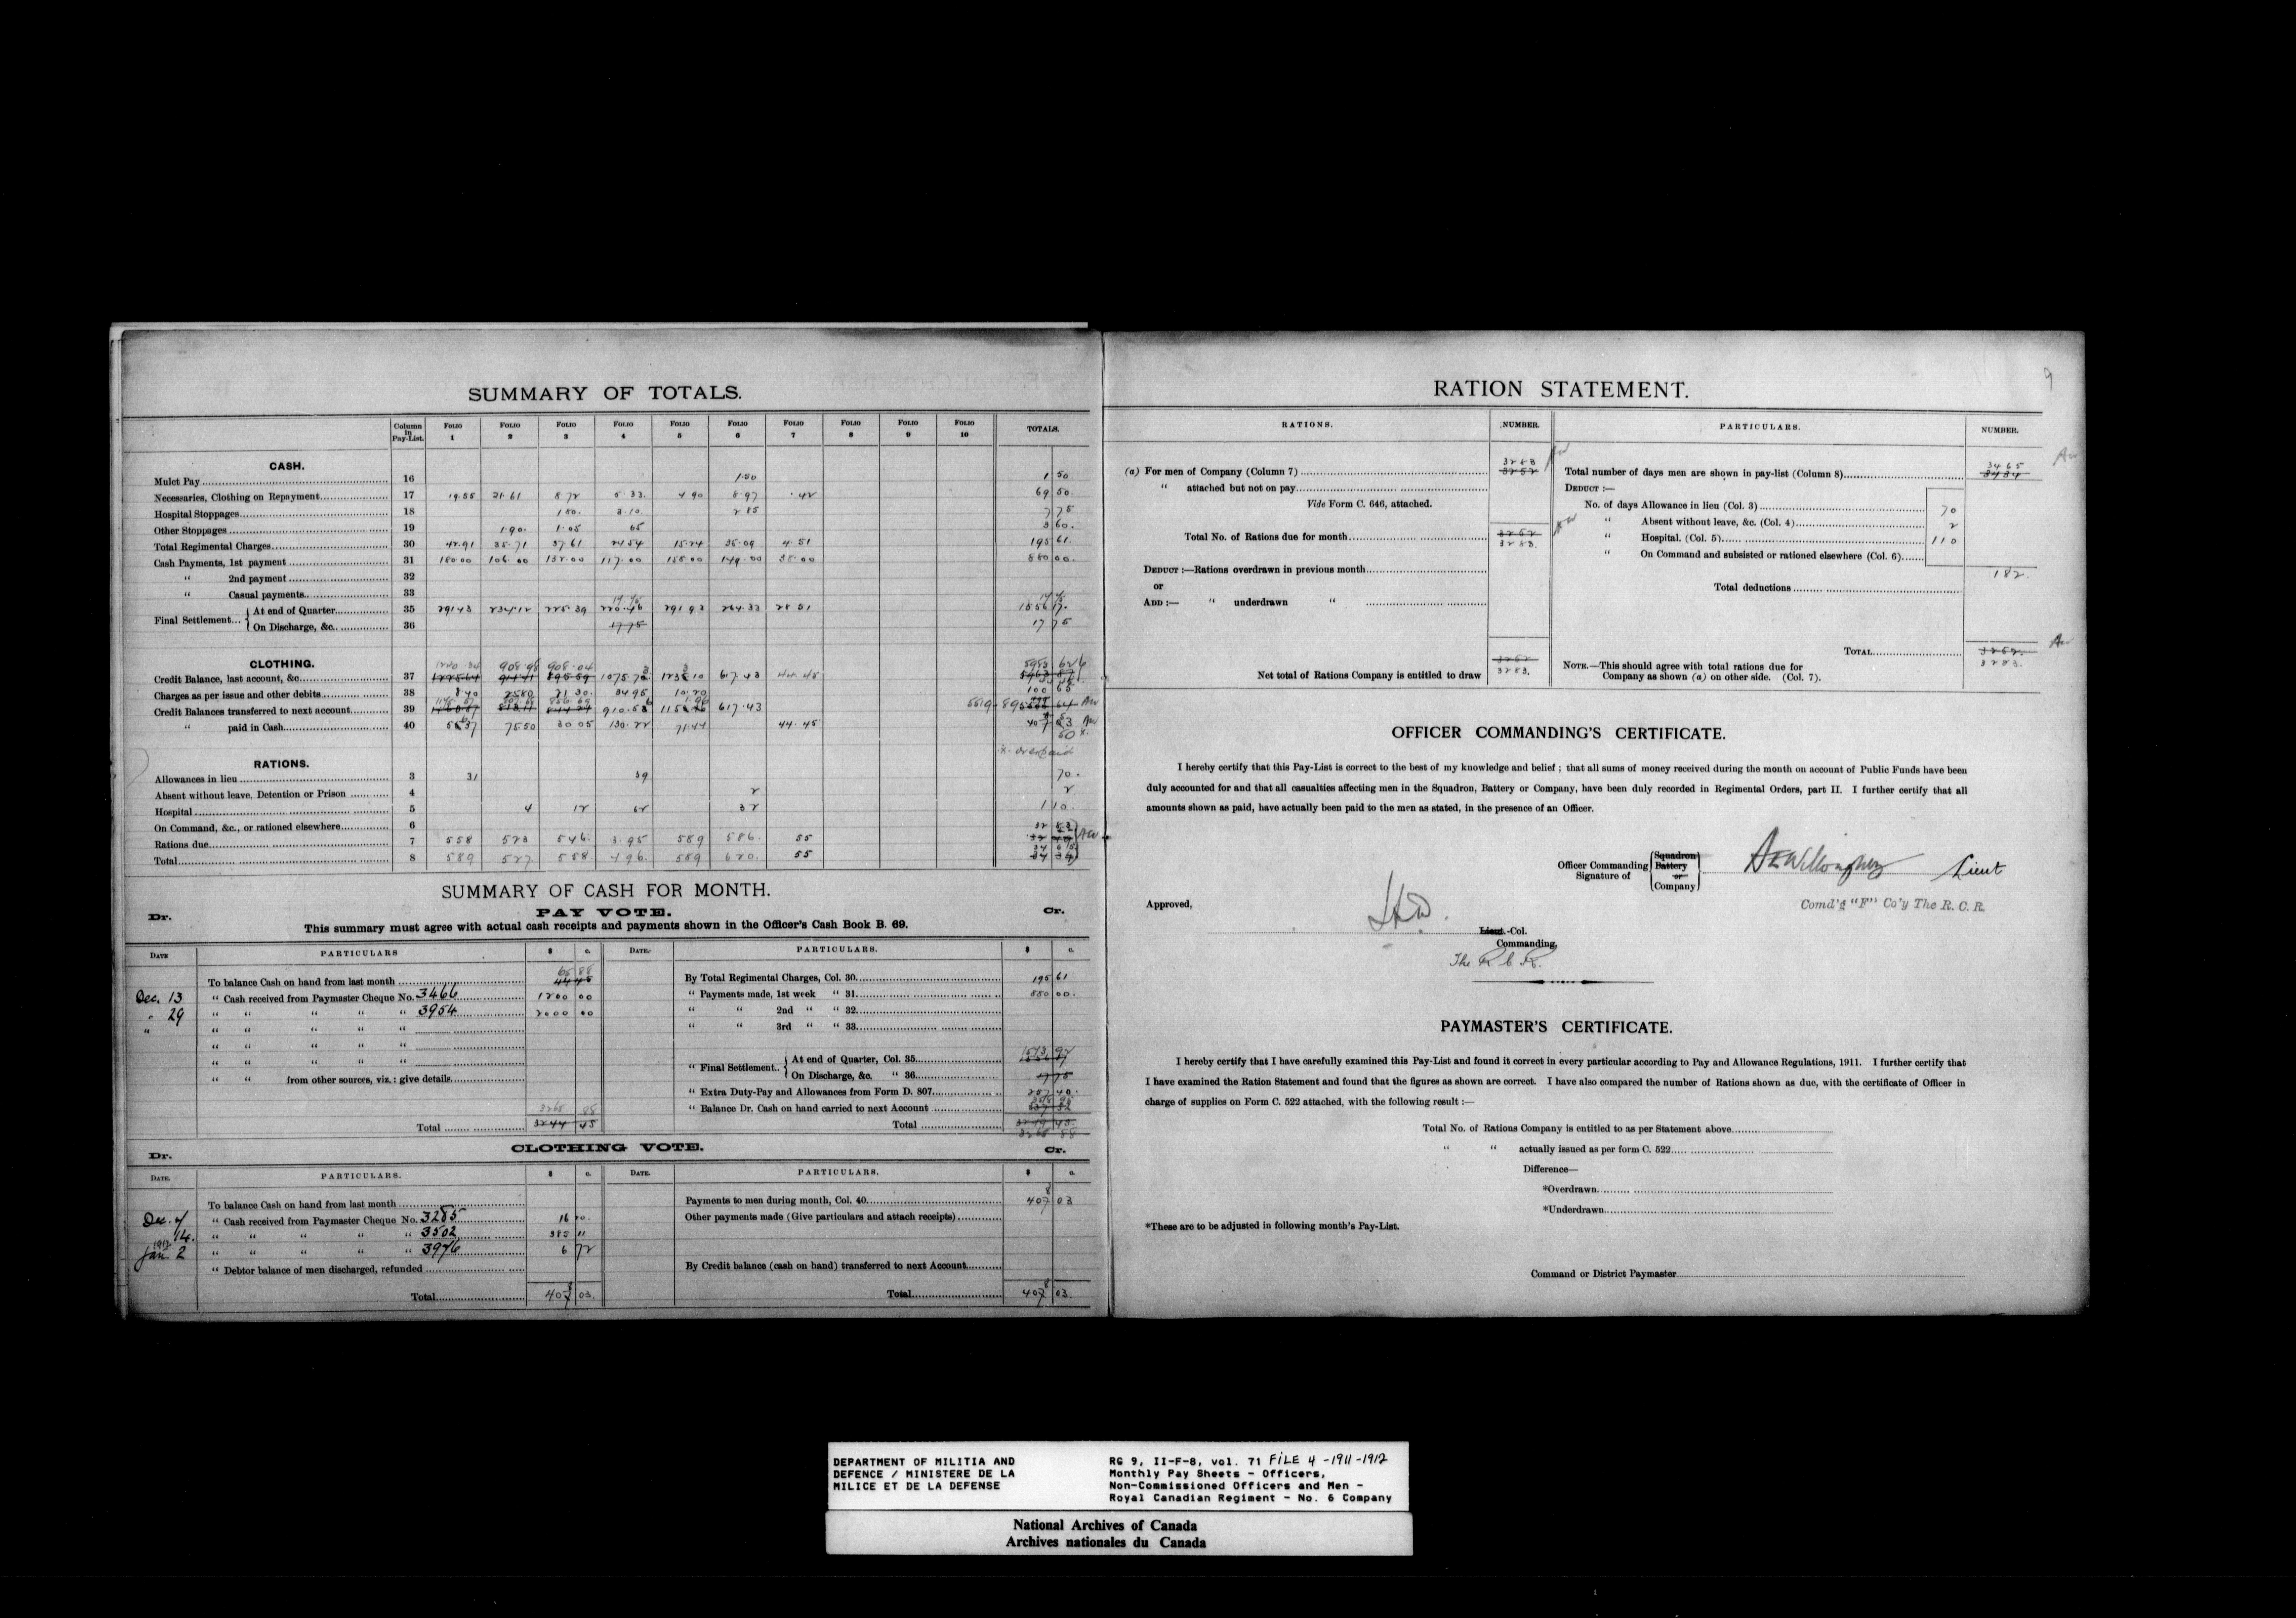 SUMMARY OF TOTALS.
Column in Pay-List. FOLIO 1 FOLIO 2 FOLIO 3 FOLIO 4 FOLIO 5 FOLIO 6 FOLIO 7 FOLIO 8 FOLIO 9 FOLIO 10 TOTALS.
CASH.
Mulct Pay 16 1.50 1 50
Necessaries, Clothing on Repayment 17 19.55 21.61 8 72 5.33. 4 90 8.97 .42 69 50.
Hospital Stoppages 18 1 80. 3.10. 2 85 7 75
Other Stoppages 19 1.90. 1.05 65 3 60.
Total Regimental Charges 30 42.91 35.71 37 61 24 54 15.24 35.09 4.51 195 61.
Cash Payments, 1st payment 31 180 00 106.00 132.00 117.00 158 00 149.00 38.00 880 00.
" 2nd payment 32
" Casual payments 33
Final Settlement... { At end of Quarter 35 291 43 234.12 225.39 220.46 291 93 264.33 28 51 1556 17.
On Discharge, &c. 36 17 75 17 75
CLOTHING.
Credit Balance, last account, &c. 37 908.98 908.04 617.43
Charges as per issue and other debits 38 8 40 25 80 21 30. 34 95 10.20 100 65
Credit Balances transferred to next account 39 617.43
" paid in Cash 40 75 50 30 05 130.22 71.44 44.45
50 x.
x. overpaid
RATIONS.
Allowances in lieu 3 31 39 70.
Absent without leave, Detention or Prison 4 2 2
Hospital 5 4 12 62 32 110.
On Command, &c., or rationed elsewhere 6
Rations due 7 558 523 546. 395 589 586. 55 32 83
Total 8 589 527 558. 496. 589 620. 55 34 65
SUMMARY OF CASH FOR MONTH.
Dr. PAY VOTE. Cr.
This summary must agree with actual cash receipts and payments shown in the Officer's Cash Book B. 69.
DATE PARTICULARS $ c. DATE. PARTICULARS. $ c.
To balance Cash on hand from last month 68 88 44 45 By Total Regimental Charges, Col. 30 195 61
Dec. 13 " Cash received from Paymaster Cheque No. 3466 1200 00 " Payments made, 1st week " 31 880 00.
" 29 " " " " " 3954 2000 00 " " 2nd " " 32
" " " " " " " " 3rd " " 33
" " " " "
" " " " " " Final Settlement.. { At end of Quarter, Col. 35 1573 92
" " from other sources, viz.: give details On Discharge, &c. " 36 17 75
" Extra Duty-Pay and Allowances from Form D. 807 207 40.
3268 88 " Balance Dr. Cash on hand carried to next Account
Total 3244 45 Total
3268 88
Dr. CLOTHING VOTE. Cr.
DATE. PARTICULARS. $ c. DATE. PARTICULARS. $ c.
To balance Cash on hand from last month Payments to men during month, Col. 40 407 03
Dec. 4 " Cash received from Paymaster Cheque No. 3285 16 20. Other payments made (Give particulars and attach receipts)
14. " " " " " 3502 385 11
1912 Jan. 2 " " " " " 3976 6 72
" Debtor balance of men discharged, refunded By Credit balance (cash on hand) transferred to next Account
Total 407 03. Total 407 03
9
RATION STATEMENT.
RATIONS. NUMBER. PARTICULARS. NUMBER.
(a) For men of Company (Column 7) 3283 3252 Total number of days men are shown in pay-list (Column 8) 3465 3434
" attached but not on pay DEDUCT :—
Vide Form C. 646, attached. No. of days Allowance in lieu (Col. 3) 70
" Absent without leave, &c. (Col. 4) 2
Total No. of Rations due for month 3252 3283. " Hospital. (Col. 5) 110
" On Command and subsisted or rationed elsewhere (Col. 6)
DEDUCT :—Rations overdrawn in previous month 182.
or Total deductions
ADD :— " underdrawn "
Total 3252. 3283.
Net total of Rations Company is entitled to draw 3252 3283. NOTE.—This should agree with total rations due for
Company as shown (a) on other side. (Col. 7).
OFFICER COMMANDING'S CERTIFICATE.
I hereby certify that this Pay-List is correct to the best of my knowledge and belief ; that all sums of money received during the month on account of Public Funds have been
duly accounted for and that all casualties affecting men in the Squadron, Battery or Company, have been duly recorded in Regimental Orders, part II. I further certify that all
amounts shown as paid, have actually been paid to the men as stated, in the presence of an Officer.
Officer Commanding Signature of { Squadron Battery or Company } Willoughby Lieut
Comd'g "F" Co'y The R. C. R.
Approved,
Lieut.-Col.
Commanding,
The R C R.
PAYMASTER'S CERTIFICATE.
I hereby certify that I have carefully examined this Pay-List and found it correct in every particular according to Pay and Allowance Regulations, 1911. I further certify that
I have examined the Ration Statement and found that the figures as shown are correct. I have also compared the number of Rations shown as due, with the certificate of Officer in
charge of supplies on Form C. 522 attached, with the following result :—
Total No. of Rations Company is entitled to as per Statement above
" " actually issued as per form C. 522
Difference—
*Overdrawn
*Underdrawn
*These are to be adjusted in following month's Pay-List.
Command or District Paymaster
DEPARTMENT OF MILITIA AND
DEFENCE / MINISTERE DE LA
MILICE ET DE LA DEFENSE
RG 9, II-F-8, vol. 71 FILE 4 - 1911-1912
Monthly Pay Sheets - Officers,
Non-Commissioned Officers and Men -
Royal Canadian Regiment - No. 6 Company
National Archives of Canada
Archives nationales du Canada